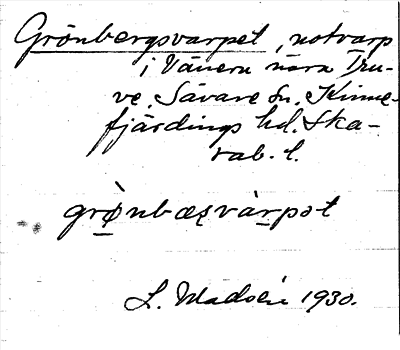 Grönbergsvarpet, notvarp
i Vänern nära Tru-
ve, Sävare sn. Kinne-
fjärdings hd. Ska-
rab. l.
grø̀nbæʂvàrpət
L. 1930.